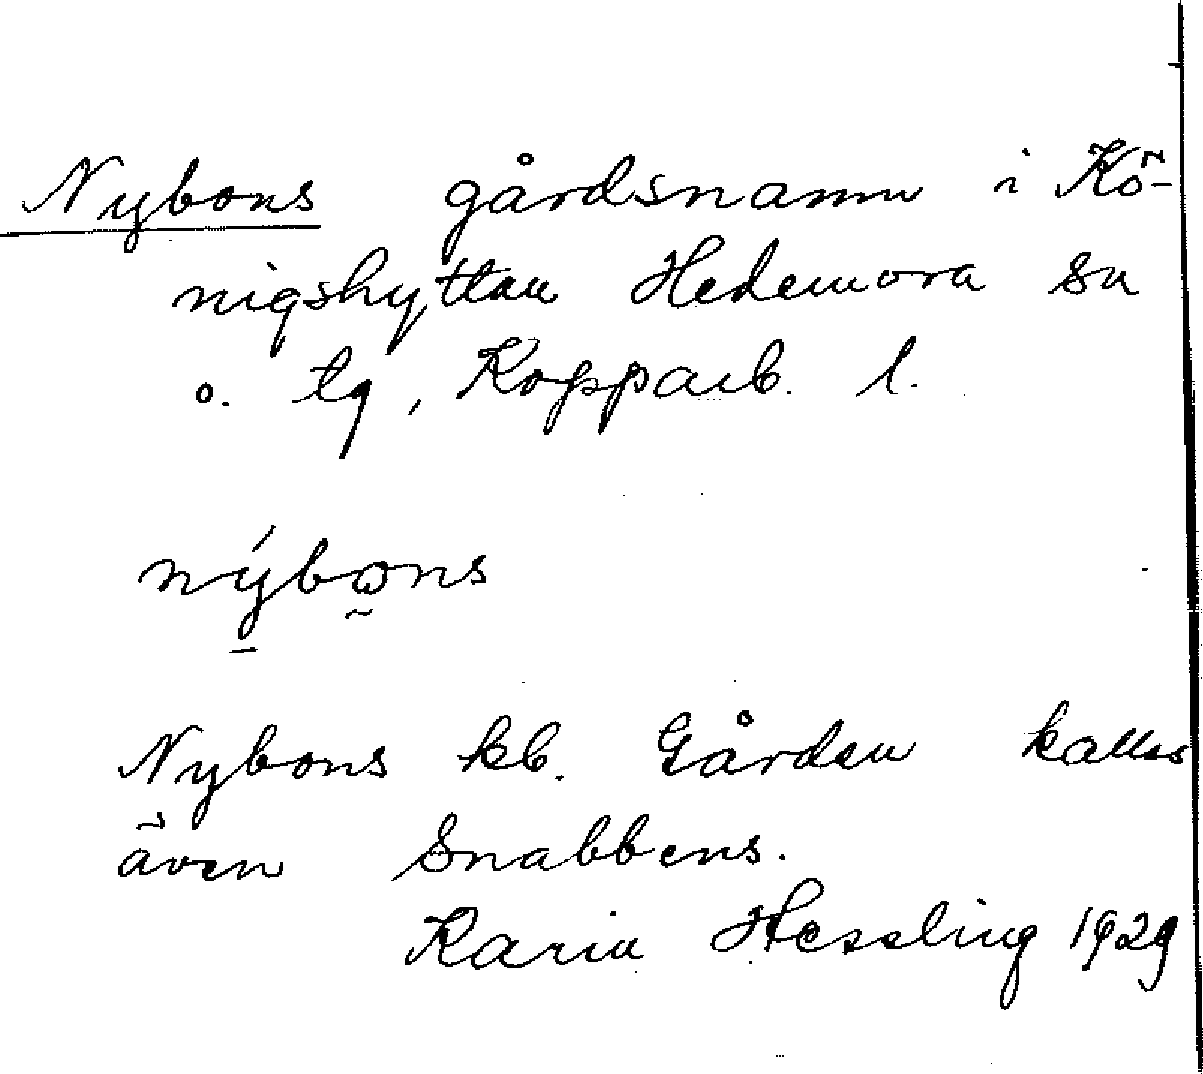 Nybons gårdsnamn i Kö-
nigshyttan Hedemora sn
o. tg, Kopparb. l.
nýbωns
Nybons kb. Gården kallas
även Snabbens.
Karin Hessling 1929